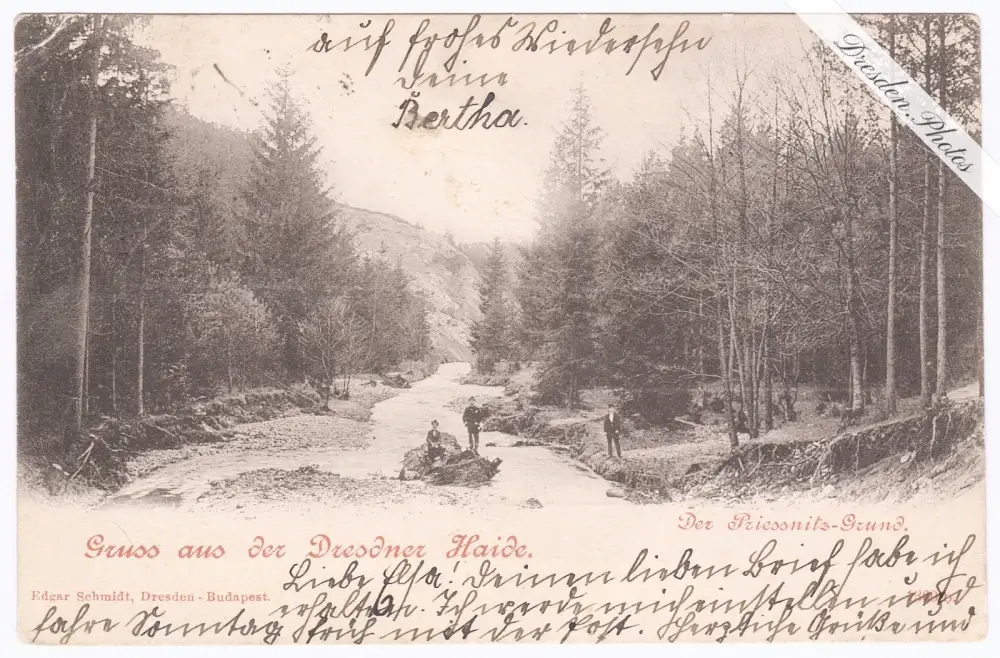 auf frohes Wiedersehn
deine
Bertha.
Dresden.Photos
Der Priessnitz-Grund.
Gruss aus der Dresdner Haide.
Liebe Elsa! Deinen lieben Brief habe ich
Edgar Schmidt, Dresden-Budapest.
erhalten. Ich werde mich einstellen und
fahre Sonntag früh mit der Post. Herzliche Grüße und